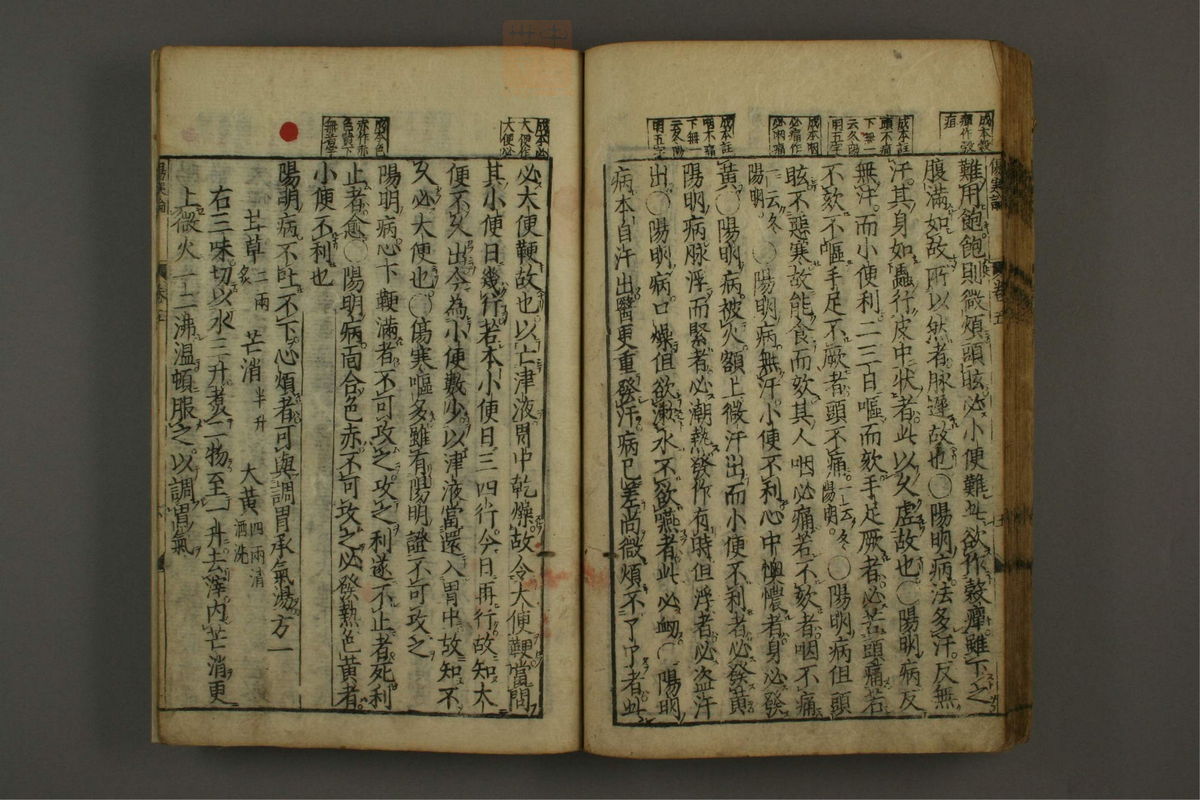 成本穀
癉作穀
疸
成本註
頭不痛
下無一
云冬陽
明五字
成本咽
必痛作
必咽痛
成本註
咽不痛
下無一
云冬陽
明五字
傷寒論　卷五
難用飽飽則微煩頭眩必小便難此欲作穀癉雖下之
腹滿如故所以然者脉遲故也○陽明病法多汗反無
汗其身如蟲行皮中狀者此以久虛故也○陽明病反
無汗而小便利二三日嘔而欬手足厥者必苦頭痛若
不欬不嘔手足不厥者頭不痛一云冬陽明○陽明病但頭
眩不惡寒故能食而欬其人咽必痛若不欬者咽不痛
一云冬陽明○陽明病無汗小便不利心中懊憹者身必發
黃○陽明病被火額上微汗出而小便不利者必發黃
陽明病脉浮而緊者必潮熱發作有時但浮者必盜汗
出○陽明病口燥但欲漱水不欲嚥者此必衄○陽明
病本自汗出醫更重發汗病已差尚微煩不了了者此
成本必
大便作
大便必
成本色
赤作赤
色黃下
無者字
必大便鞕故也以亡津液胃中乾燥故令大便鞕當問
其小便日幾行若本小便日三四行今日再行故知大
便不久出今為小便數少以津液當還入胃中故知不
久必大便也○傷寒嘔多雖有陽明證不可攻之
陽明病心下鞕滿者不可攻之攻之利遂不止者死利
止者愈○陽明病面合色赤不可攻之必發熱色黃者
小便不利也
陽明病不吐不下心煩者可與調胃承氣湯方一
甘草二兩炙　芒消半升　大黃四兩清酒洗
右三味切以水三升煮二物至一升去滓內芒消更
上微火一二沸溫頓服之以調胃氣
傷寒論　卷五